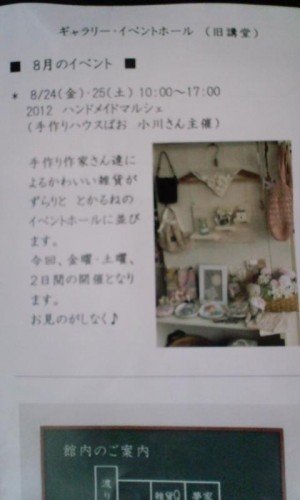 ギャラリー・イベントホール （旧講堂）
■ 8月のイベント ■
* 8/24(金)・25(土) 10:00～17:00
2012 ハンドメイドマルシェ
（手作りハウスぱお 小川さん主催）
手作り作家さん達に
よるかわいい雑貨が
ずらりと とかるねの
イベントホールに並び
ます。
今回、金曜・土曜、
2日間の開催となり
ます。
お見のがしなく♪
館内のご案内
渡り
雑貨